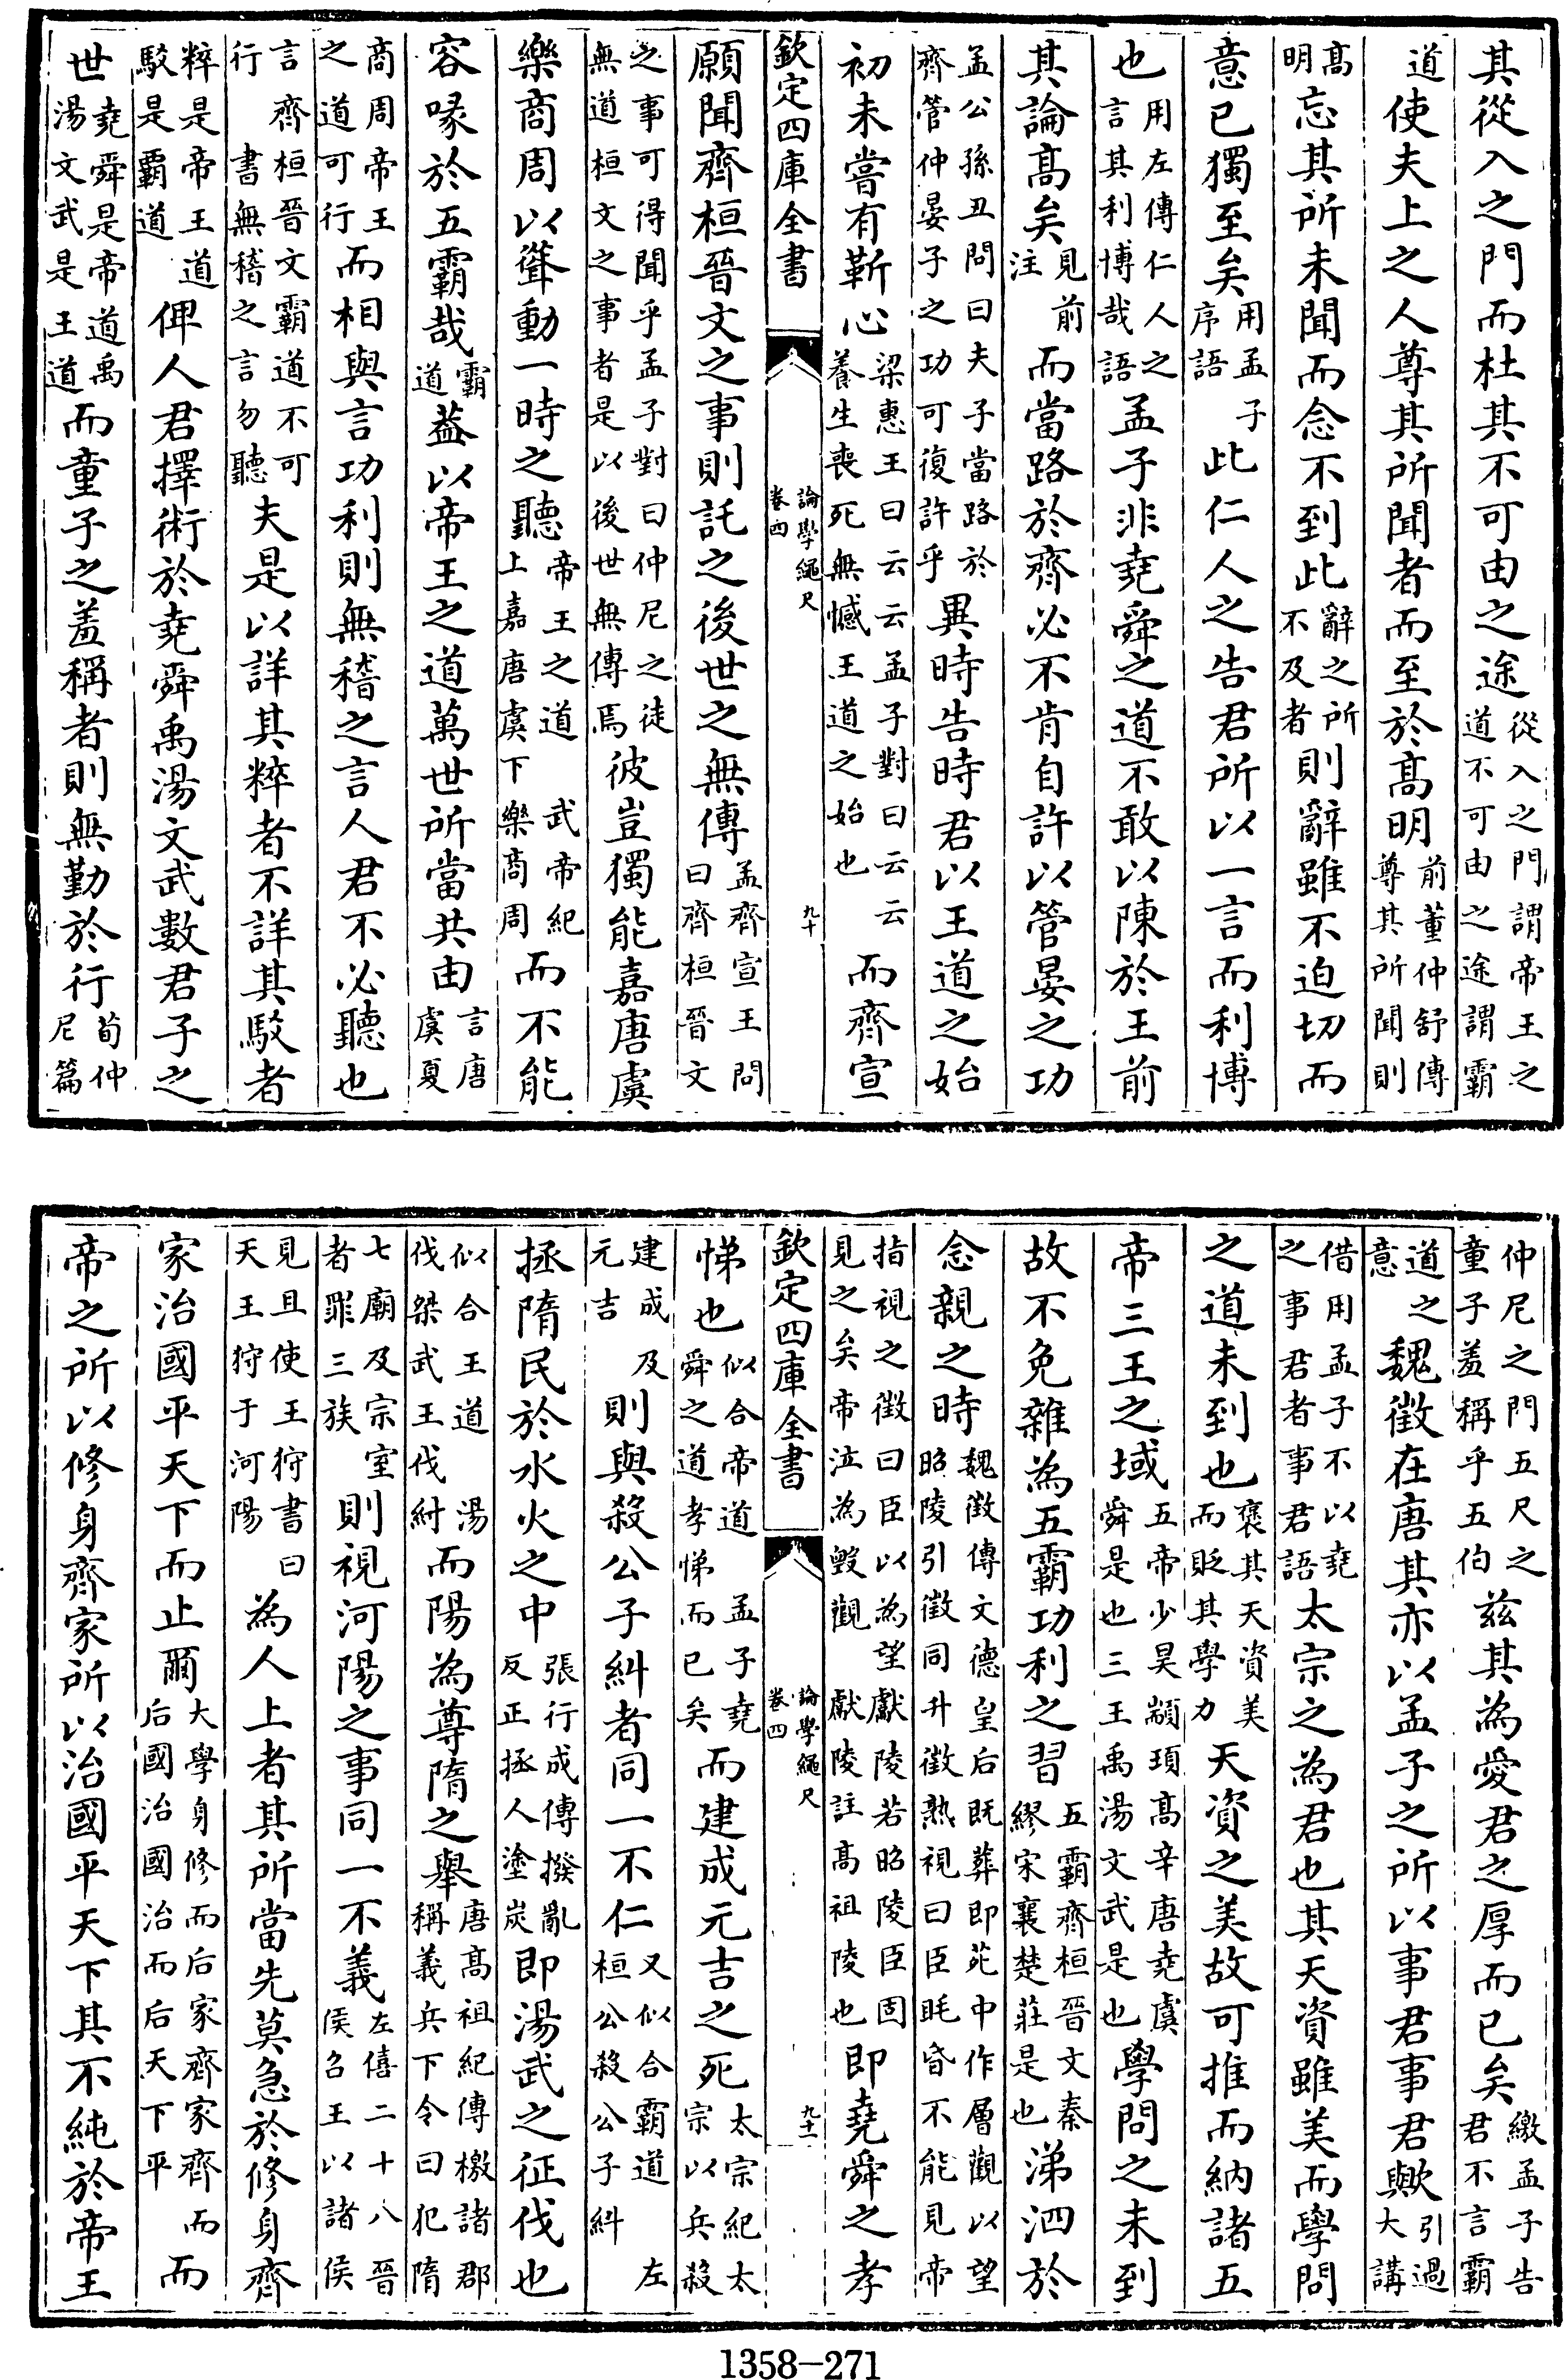 其從入之門而杜其不可由之途從入之門謂帝王之道不可由之途謂霸
道使夫上之人尊其所聞者而至於高明前董仲舒傳尊其所聞則
高明忘其所未聞而念不到此辭之所不及者則辭雖不迫切而
意已獨至矣用孟子序語此仁人之告君所以一言而利博
也用左傳仁人之言其利博哉語孟子非堯舜之道不敢以陳於王前
其論高矣見前注而當路於齊必不肯自許以管晏之功
孟公孫丑問曰夫子當路於齊管仲晏子之功可復許乎異時告時君以王道之始
初未嘗有靳心梁惠王曰云云孟子對曰云云養生喪死無憾王道之始也而齊宣
欽定四庫全書
論學繩尺
卷四
九十
願聞齊桓晉文之事則託之後世之無傳孟齊宣王問曰齊桓晉文
之事可得聞乎孟子對曰仲尼之徒無道桓文之事者是以後世無傳焉彼豈獨能嘉唐虞
樂商周以聳動一時之聽帝王之道武帝紀上嘉唐虞下樂商周而不能
容喙於五霸哉霸道葢以帝王之道萬世所當共由言唐虞夏
商周帝王之道可行而相與言功利則無稽之言人君不必聽也
言齊桓晉文霸道不可行書無稽之言勿聽夫是以詳其粹者不詳其駁者
粹是帝王道駁是霸道俾人君擇術於堯舜禹湯文武數君子之
世堯舜是帝道禹湯文武是王道而童子之羞稱者則無勤於行荀仲尼篇
仲尼之門五尺之童子羞稱乎五伯兹其為愛君之厚而已矣繳孟子告君不言霸
道之意魏徵在唐其亦以孟子之所以事君事君歟引過大講
借用孟子不以堯之事君者事君語太宗之為君也其天資雖美而學問
之道未到也褒其天資美而貶其學力天資之美故可推而納諸五
帝三王之域五帝少昊顓頊高辛唐堯虞舜是也三王禹湯文武是也學問之未到
故不免雜為五霸功利之習五霸齊桓晉文秦繆宋襄楚莊是也涕泗於
念親之時魏徵傳文德皇后既葬即苑中作層觀以望昭陵引徵同升徵熟視曰臣眊昏不能見帝
指視之徵曰臣以為望獻陵若昭陵臣固見之矣帝泣為毀觀獻陵註高祖陵也即堯舜之孝
欽定四庫全書
論學繩尺
卷四
九十一
悌也似合帝道孟子堯舜之道孝悌而已矣而建成元吉之死太宗紀太宗以兵殺
建成及元吉則與殺公子糾者同一不仁又似合霸道左桓公殺公子糾
拯隋民於水火之中張行成傳撥亂反正拯人塗炭即湯武之征伐也
似合王道湯伐桀武王伐紂而陽為尊隋之舉唐高祖紀傳檄諸郡稱義兵下令曰犯隋
七廟及宗室者罪三族則視河陽之事同一不義左僖二十八晉侯召王以諸侯
見且使王狩書曰天王狩于河陽為人上者其所當先莫急於修身齊
家治國平天下而止爾大學身修而后家齊家齊而后國治國治而后天下平而
帝之所以修身齊家所以治國平天下其不純於帝王
1358-271